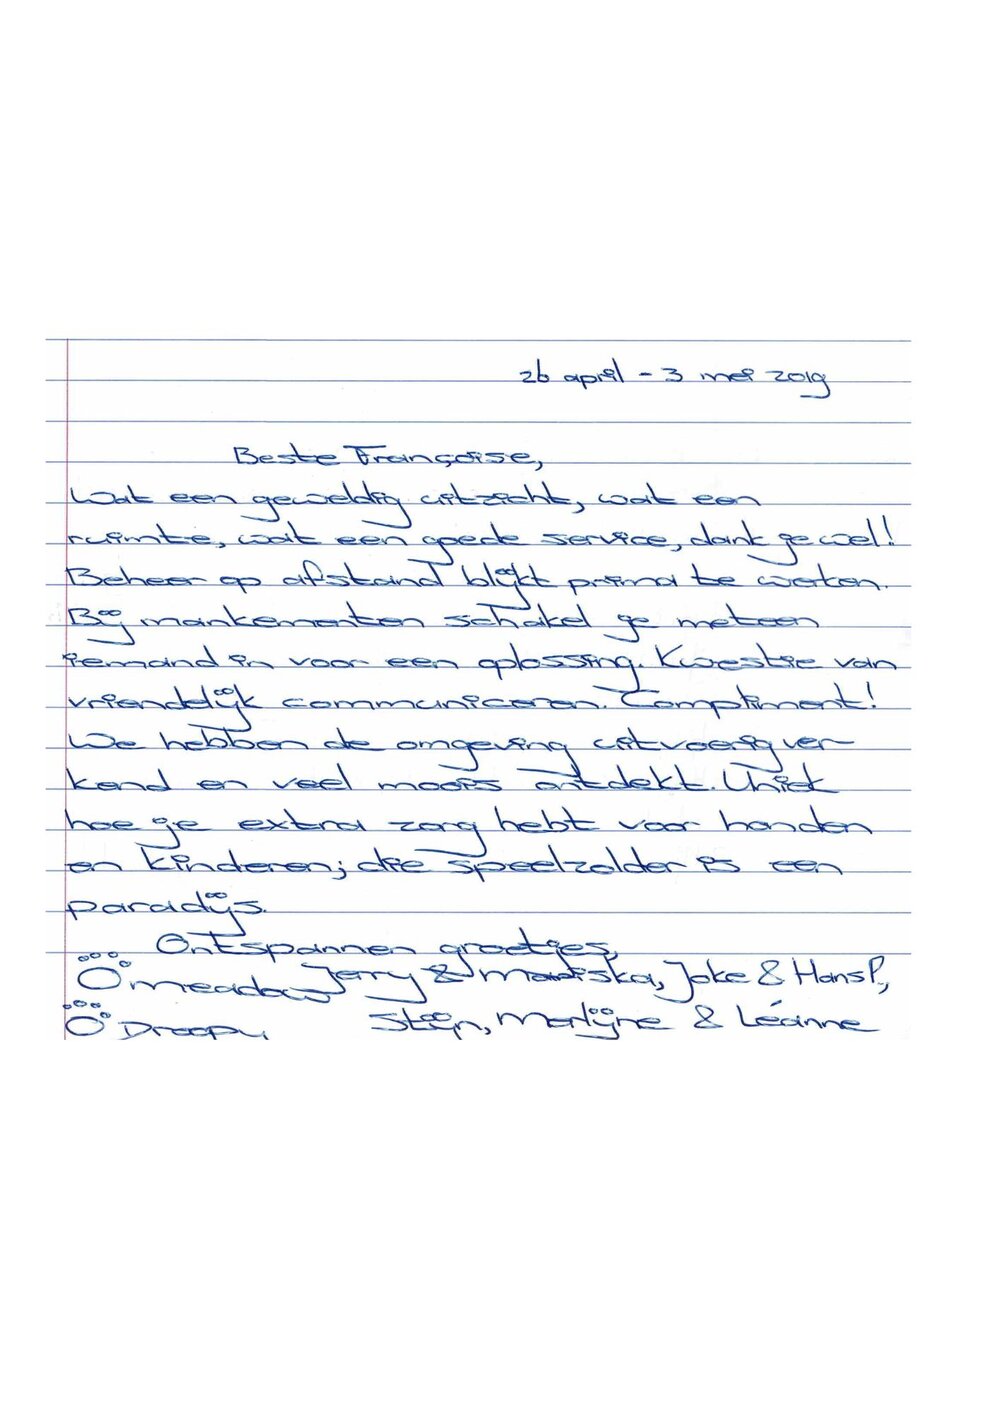 26 april - 3 mei 2019
Beste Françoise,
Wat een geweldig uitzicht, wat een
ruimte, wat een goede service, dank je wel!
Beheer op afstand blijkt prima te werken.
Bij mankementen schakel je meteen
iemand in voor een oplossing. Kwestie van
vriendelijk communiceren. Compliment!
We hebben de omgeving uitvoerig ver-
kend en veel moois ontdekt. Uniek
hoe je extra zorg hebt voor honden
en kinderen; die speelzolder is een
paradijs.
Ontspannen groetjes,
Meadow Jerry & Mariska, Joke & Hans P,
Droopy Stijn, Merlijne & Léanne